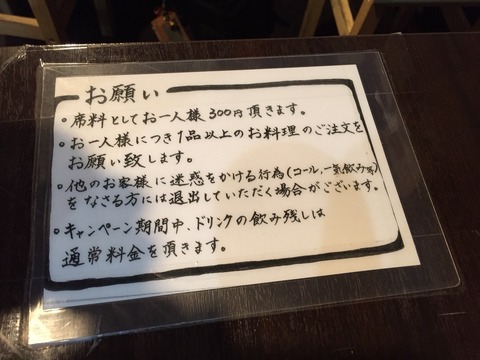 お願い
・席料としてお一人様300円頂きます。
・お一人様につき1品以上のお料理のご注文を
お願い致します。
・他のお客様に迷惑をかける行為(コール、一気飲み等)
をなさる方には退出していただく場合がございます。
・キャンペーン期間中、ドリンクの飲み残しは
通常料金を頂きます。